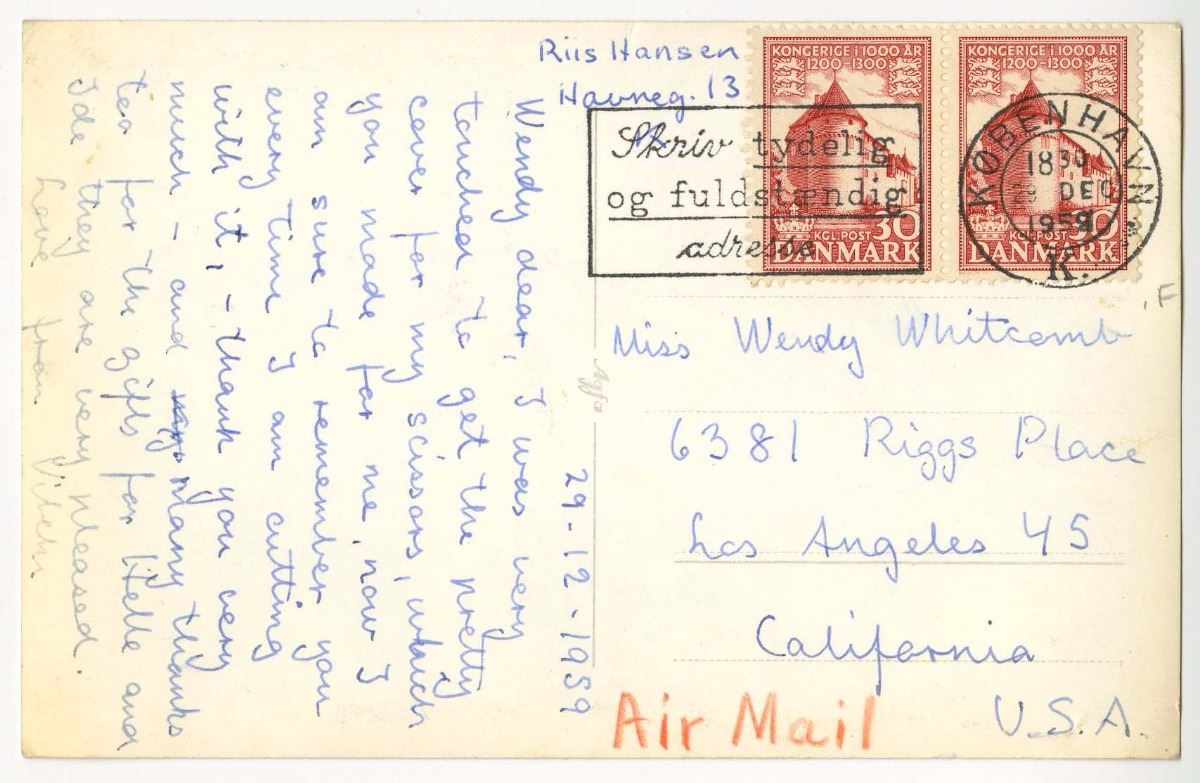 Riis Hansen
Havneg. 13
KONGERIGE I 1000 ÅR
1200-1300
KGL. POST 30
DANMARK
KONGERIGE I 1000 ÅR
1200-1300
KGL. POST 30
DANMARK
Skriv tydelig
og fuldstændig
adresse
KØBENHAVN
18 30
29 DEC
1959
K.
F
Miss Wendy Whitcomb
6381 Riggs Place
Los Angeles 45
California
U.S.A.
Air Mail
Agfa
29-12-1959
Wendy dear, I was very
touched to get the pretty
cover for my scissors, which
you made for me, now I
am sure to remember you
every time I am cutting
with it, - thank you very
much - and many thanks
too for the gifts for Helle and
Ida they are very pleased.
Love from